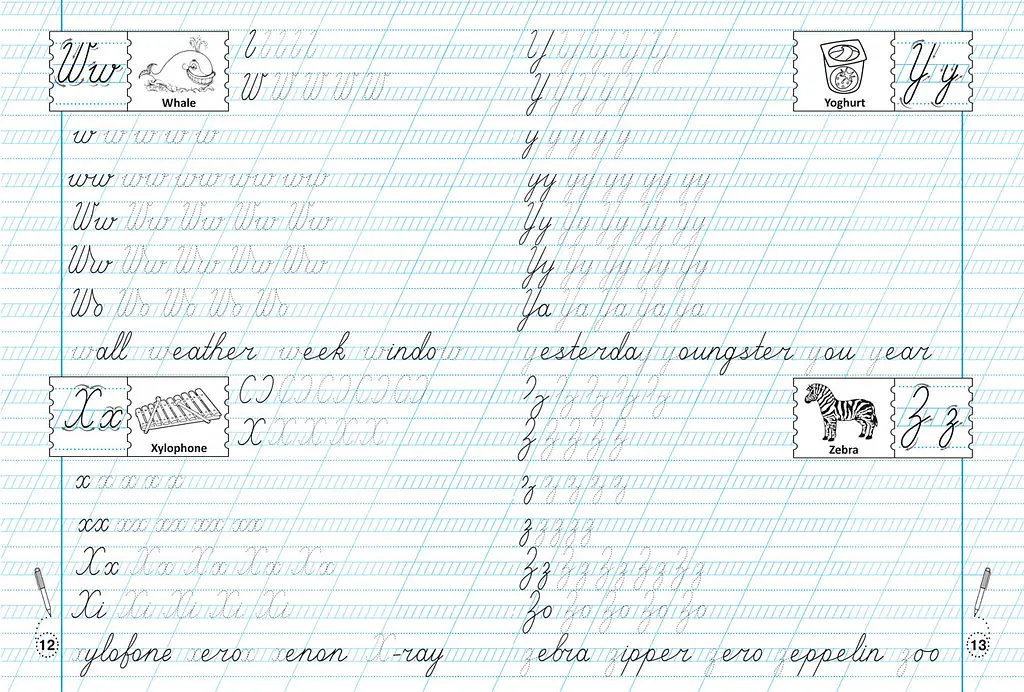 Ww
Whale
W W W W W
w w w w w
ww ww ww ww ww
Ww Ww Ww Ww Ww
Ww Ww Ww Ww Ww
Wo Wo Wo Wo Wo
wall weather week window
Xx
Xylophone
X X X X X
x x x x x
xx xx xx xx xx
Xx Xx Xx Xx Xx
Xi Xi Xi Xi Xi
xylofone xerox xenon X-ray
12
Yy
Yoghurt
Y Y Y Y Y
y y y y y
yy yy yy yy yy
Yy Yy Yy Yy Yy
Yy Yy Yy Yy Yy
Ya Ya Ya Ya Ya
yesterday youngster you year
Zz
Zebra
Z Z Z Z Z
z z z z z
Zz Zz Zz Zz Zz
Zo Zo Zo Zo Zo
zebra zipper zero zeppelin zoo
13